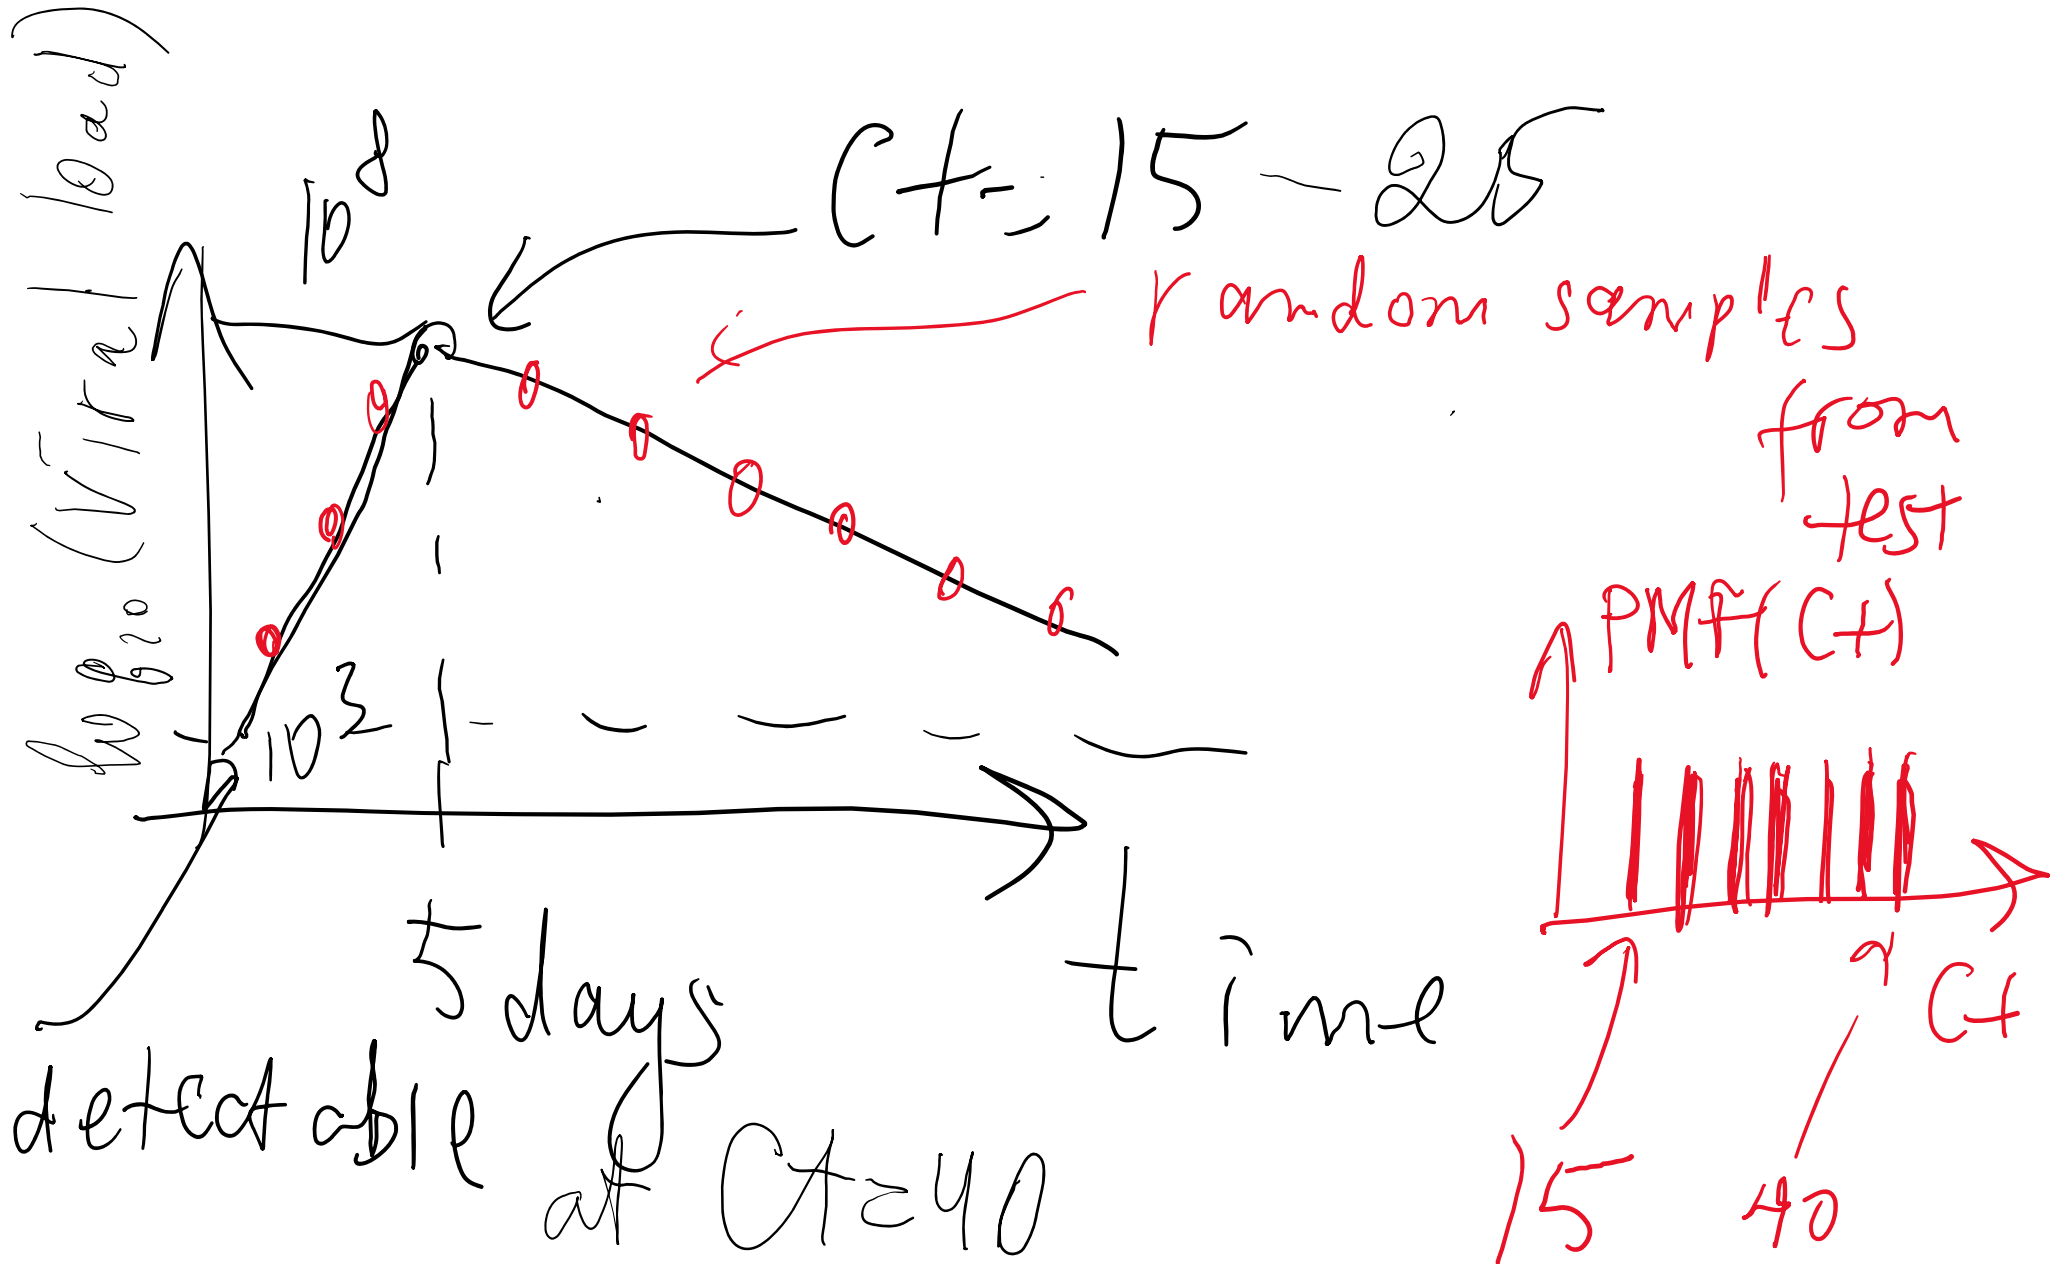 log10 (Viral load)
10^8
Ct = 15 - 25
random samples
from
test
10^3
PMF(Ct)
5 days
time
Ct
detectable
at Ct = 40
15
40